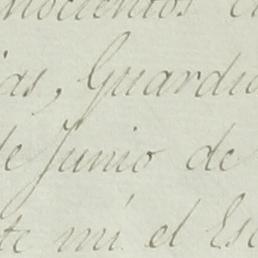 nocientos
as, Guardi
de Junio de
te mí el Esc